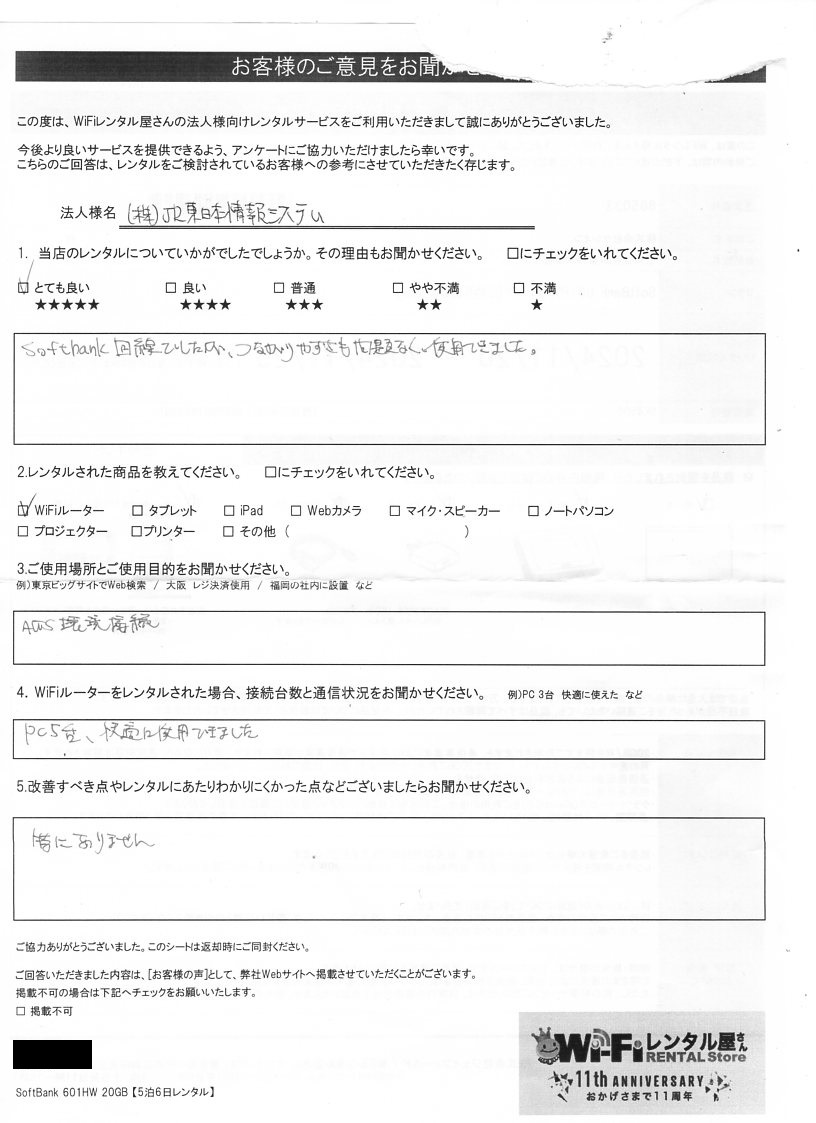 お客様のご意見をお聞かせ
この度は、WiFiレンタル屋さんの法人様向けレンタルサービスをご利用いただきまして誠にありがとうございました。
今後より良いサービスを提供できるよう、アンケートにご協力いただけましたら幸いです。
こちらのご回答は、レンタルをご検討されているお客様への参考にさせていただきたく存じます。
法人様名 (株)JR東日本情報システム
1. 当店のレンタルについていかがでしたでしょうか。その理由もお聞かせください。 □にチェックをいれてください。
☑ とても良い □ 良い □ 普通 □ やや不満 □ 不満
★★★★★ ★★★★ ★★★ ★★ ★
Softbank回線でしたが、つながりやすさも問題なく、使用できました。
2.レンタルされた商品を教えてください。 □にチェックをいれてください。
☑ WiFiルーター □ タブレット □ iPad □ Webカメラ □ マイク・スピーカー □ ノートパソコン
□ プロジェクター □プリンター □ その他 ( )
3.ご使用場所とご使用目的をお聞かせください。
例)東京ビッグサイトでWeb検索 / 大阪 レジ決済使用 / 福岡の社内に設置 など
AWS環境接続
4. WiFiルーターをレンタルされた場合、接続台数と通信状況をお聞かせください。 例)PC 3台 快適に使えた など
PC5台、快適に使用できました
5.改善すべき点やレンタルにあたりわかりにくかった点などございましたらお聞かせください。
特にありません
ご協力ありがとうございました。このシートは返却時にご同封ください。
ご回答いただきました内容は、[お客様の声]として、弊社Webサイトへ掲載させていただくことがございます。
掲載不可の場合は下記へチェックをお願いいたします。
□ 掲載不可
Wi-Fiレンタル屋さん
RENTAL Store
11th ANNIVERSARY
おかげさまで11周年
SoftBank 601HW 20GB【5泊6日レンタル】